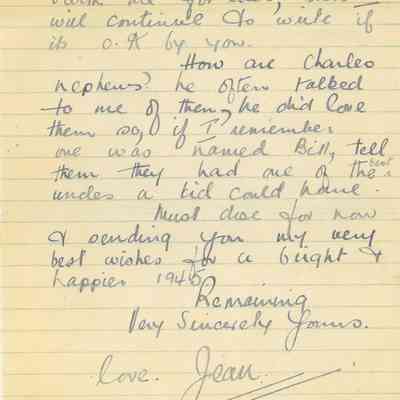 will continue to write if
its O.K by you.
How are Charles
nephews? he often talked
to me of them, he did love
them so, if I remember
one was named Bill, tell
them they had one of the best
uncles a kid could have.
Must close for now
& sending you my very
best wishes for a bright &
happier 1945
Remaining
Very Sincerely Yours.
love. Jean.